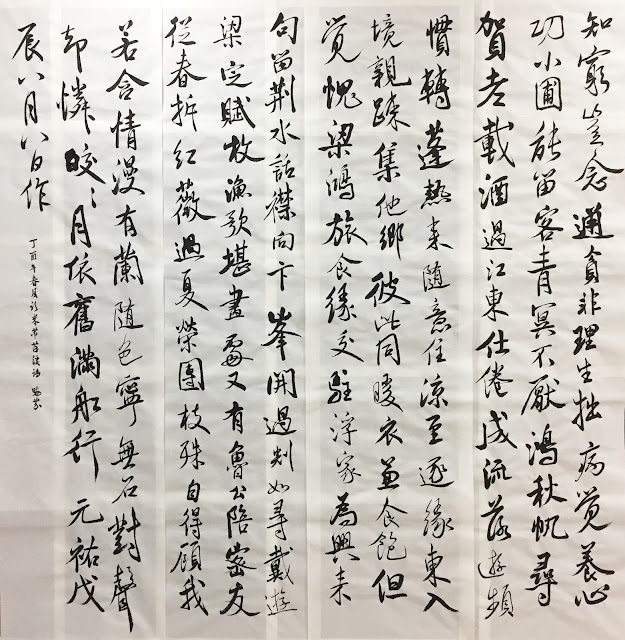 知窮豈念通貧非理生拙病覺養心
功小圃能留客青冥不厭鴻秋帆尋
賀老載酒過江東仕倦成流落遊頻
慣轉蓬熱來隨意住涼至逐緣東入
境親疎集他鄉彼此同暖衣兼食飽但
覺愧梁鴻旅食緣交駐浮家為興來
句留荊水話襟向卞峯開過剡如尋戴遊
梁定賦枚漁歌堪畫處又有魯公陪密友
從春拆紅薇過夏榮團枝殊自得顧我
若含情漫有蘭隨色寧無石對聲
却憐皎〻月依舊滿船行元祐戊
辰八月八日作
丁酉年春米芾苕溪詩